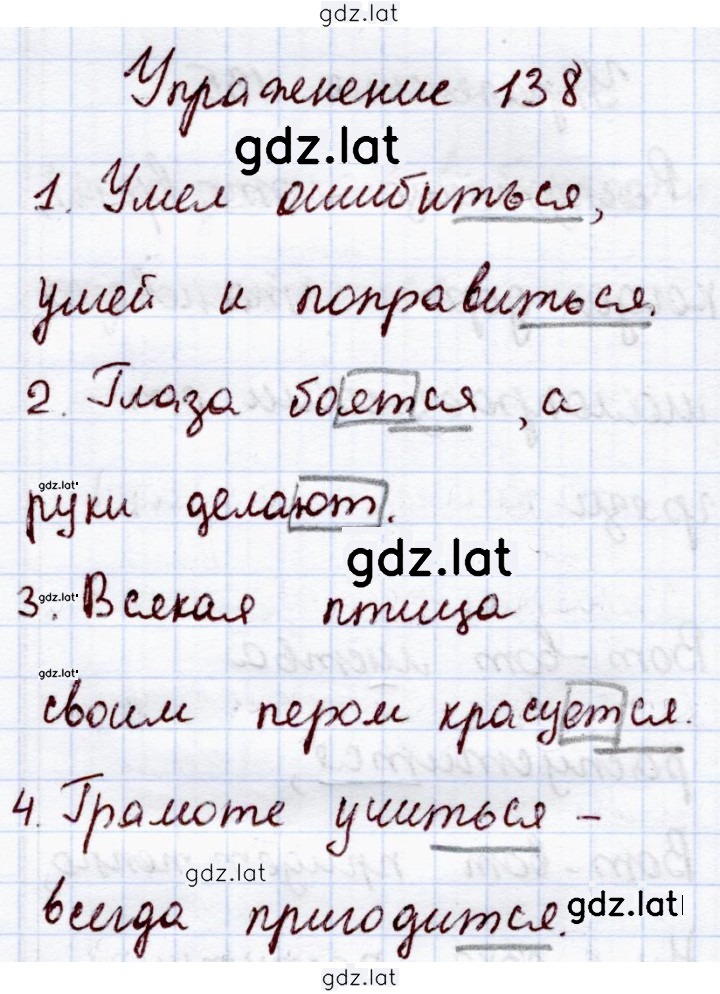 gdz.lat
Упражнение 138
gdz.lat
1. Умел ошибиться,
умей и поправиться.
2. Глаза боятся, а
gdz.lat
руки делают.
gdz.lat
3. gdz.lat Всякая птица
gdz.lat
своим пером красуется.
4. Грамоте учиться –
gdz.lat
всегда пригодится. gdz.lat
gdz.lat